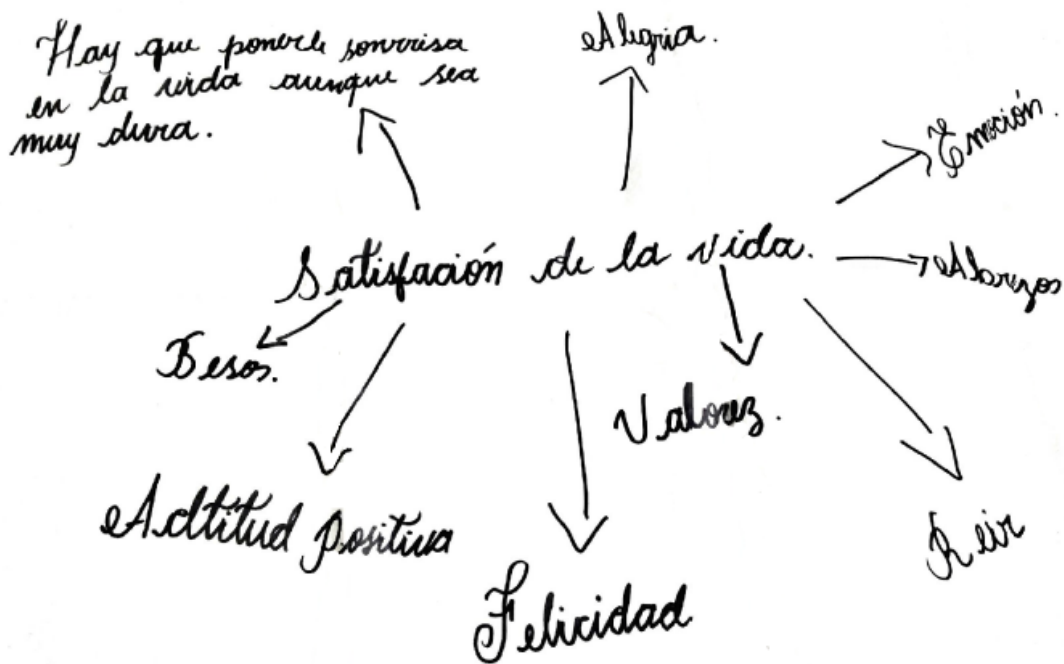 Hay que ponerle sonrrisa
en la vida aunque sea
muy dura.
Alegria.
Emoción.
Satisfación de la vida.
Abrazos
Besos.
Valorez.
Adtitud positiva
Reir
Felicidad